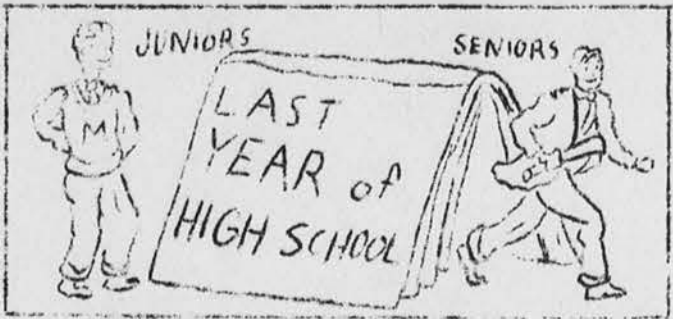 JUNIORS
SENIORS
M
LAST
YEAR of
HIGH SCHOOL